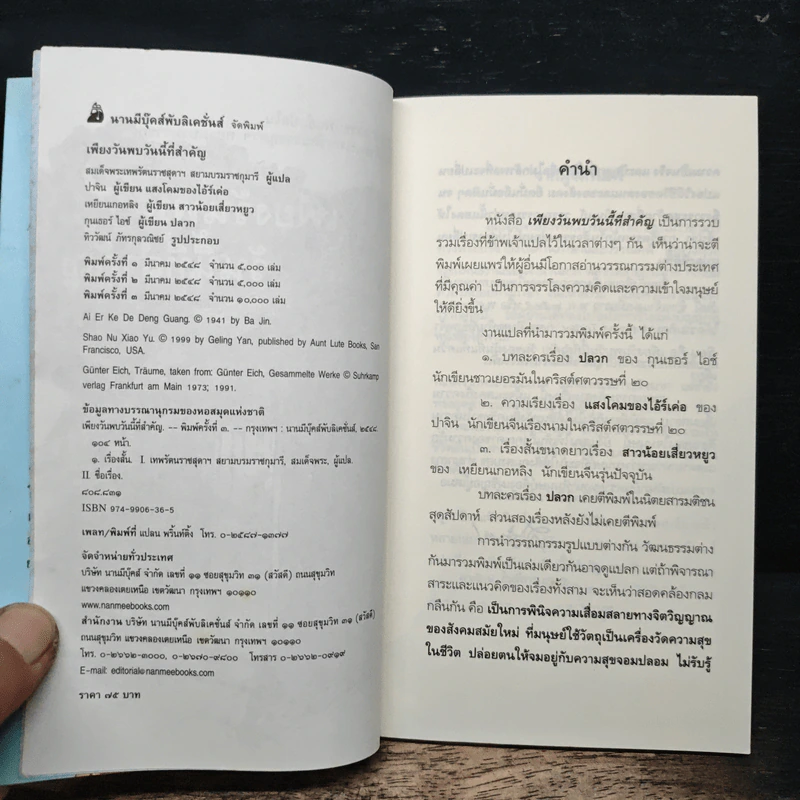 นานมีบุ๊คส์พับลิเคชั่นส์ จัดพิมพ์
เพียงวันพบวันนี้ที่สำคัญ
สมเด็จพระเทพรัตนราชสุดาฯ สยามบรมราชกุมารี ผู้แปล
ปาจิน ผู้เขียน แสงโคมของไอ้ร์เค่อ
เหยียนเกอหลิง ผู้เขียน สาวน้อยเสี่ยวหยูว
กุนเธอร์ ไอช์ ผู้เขียน ปลวก
ทิววัฒน์ ภัทรกุลวณิชย์ รูปประกอบ
พิมพ์ครั้งที่ ๑ มีนาคม ๒๕๔๘ จำนวน ๕,๐๐๐ เล่ม
พิมพ์ครั้งที่ ๒ มีนาคม ๒๕๔๘ จำนวน ๕,๐๐๐ เล่ม
พิมพ์ครั้งที่ ๓ มีนาคม ๒๕๔๘ จำนวน ๑๐,๐๐๐ เล่ม
Ai Er Ke De Deng Guang. © 1941 by Ba Jin.
Shao Nu Xiao Yu. © 1999 by Geling Yan, published by Aunt Lute Books, San
Francisco, USA.
Günter Eich, Träume, taken from: Günter Eich, Gesammelte Werke © Suhrkamp
verlag Frankfurt am Main 1973; 1991.
ข้อมูลทางบรรณานุกรมของหอสมุดแห่งชาติ
เพียงวันพบวันนี้ที่สำคัญ. -- พิมพ์ครั้งที่ ๓. -- กรุงเทพฯ : นานมีบุ๊คส์พับลิเคชั่นส์, ๒๕๔๘
๑๐๔ หน้า.
๑. เรื่องสั้น. I. เทพรัตนราชสุดาฯ สยามบรมราชกุมารี, สมเด็จพระ, ผู้แปล.
II. ชื่อเรื่อง.
๘๐๘.๘๓๑
ISBN 974-9906-36-5
เพลท/พิมพ์ที่ แปลน พริ้นท์ติ้ง โทร. ๐-๒๕๘๗-๑๓๗๗
จัดจำหน่ายทั่วประเทศ
บริษัท นานมีบุ๊คส์ จำกัด เลขที่ ๑๑ ซอยสุขุมวิท ๓๑ (สวัสดี) ถนนสุขุมวิท
แขวงคลองเตยเหนือ เขตวัฒนา กรุงเทพฯ ๑๐๑๑๐
www.nanmeebooks.com
สำนักงาน บริษัท นานมีบุ๊คส์พับลิเคชั่นส์ จำกัด เลขที่ ๑๑ ซอยสุขุมวิท ๓๑ (สวัสดี)
ถนนสุขุมวิท แขวงคลองเตยเหนือ เขตวัฒนา กรุงเทพฯ ๑๐๑๑๐
โทร. ๐-๒๖๖๒-๓๐๐๐, ๐-๒๖๗๐-๙๘๐๐ โทรสาร ๐-๒๖๖๒-๐๙๑๙
E-mail: editorial@nanmeebooks.com
ราคา ๗๕ บาท
คำนำ
หนังสือ เพียงวันพบวันนี้ที่สำคัญ เป็นการรวบ
รวมเรื่องที่ข้าพเจ้าแปลไว้ในเวลาต่างๆ กัน เห็นว่าน่าจะตี
พิมพ์เผยแพร่ให้ผู้อื่นมีโอกาสอ่านวรรณกรรมต่างประเทศ
ที่มีคุณค่า เป็นการจรรโลงความคิดและความเข้าใจมนุษย์
ให้ดียิ่งขึ้น
งานแปลที่นำมารวมพิมพ์ครั้งนี้ ได้แก่
๑. บทละครเรื่อง ปลวก ของ กุนเธอร์ ไอช์
นักเขียนชาวเยอรมันในคริสต์ศตวรรษที่ ๒๐
๒. ความเรียงเรื่อง แสงโคมของไอ้ร์เค่อ ของ
ปาจิน นักเขียนจีนเรืองนามในคริสต์ศตวรรษที่ ๒๐
๓. เรื่องสั้นขนาดยาวเรื่อง สาวน้อยเสี่ยวหยูว
ของ เหยียนเกอหลิง นักเขียนจีนรุ่นปัจจุบัน
บทละครเรื่อง ปลวก เคยตีพิมพ์ในนิตยสารมติชน
สุดสัปดาห์ ส่วนสองเรื่องหลังยังไม่เคยตีพิมพ์
การนำวรรณกรรมรูปแบบต่างกัน วัฒนธรรมต่าง
กันมารวมพิมพ์เป็นเล่มเดียวกันอาจดูแปลก แต่ถ้าพิจารณา
สาระและแนวคิดของเรื่องทั้งสาม จะเห็นว่าสอดคล้องกลม
กลืนกัน คือ เป็นการพินิจความเสื่อมสลายทางจิตวิญญาณ
ของสังคมสมัยใหม่ ที่มนุษย์ใช้วัตถุเป็นเครื่องวัดความสุข
ในชีวิต ปล่อยตนให้จมอยู่กับความสุขจอมปลอม ไม่รับรู้